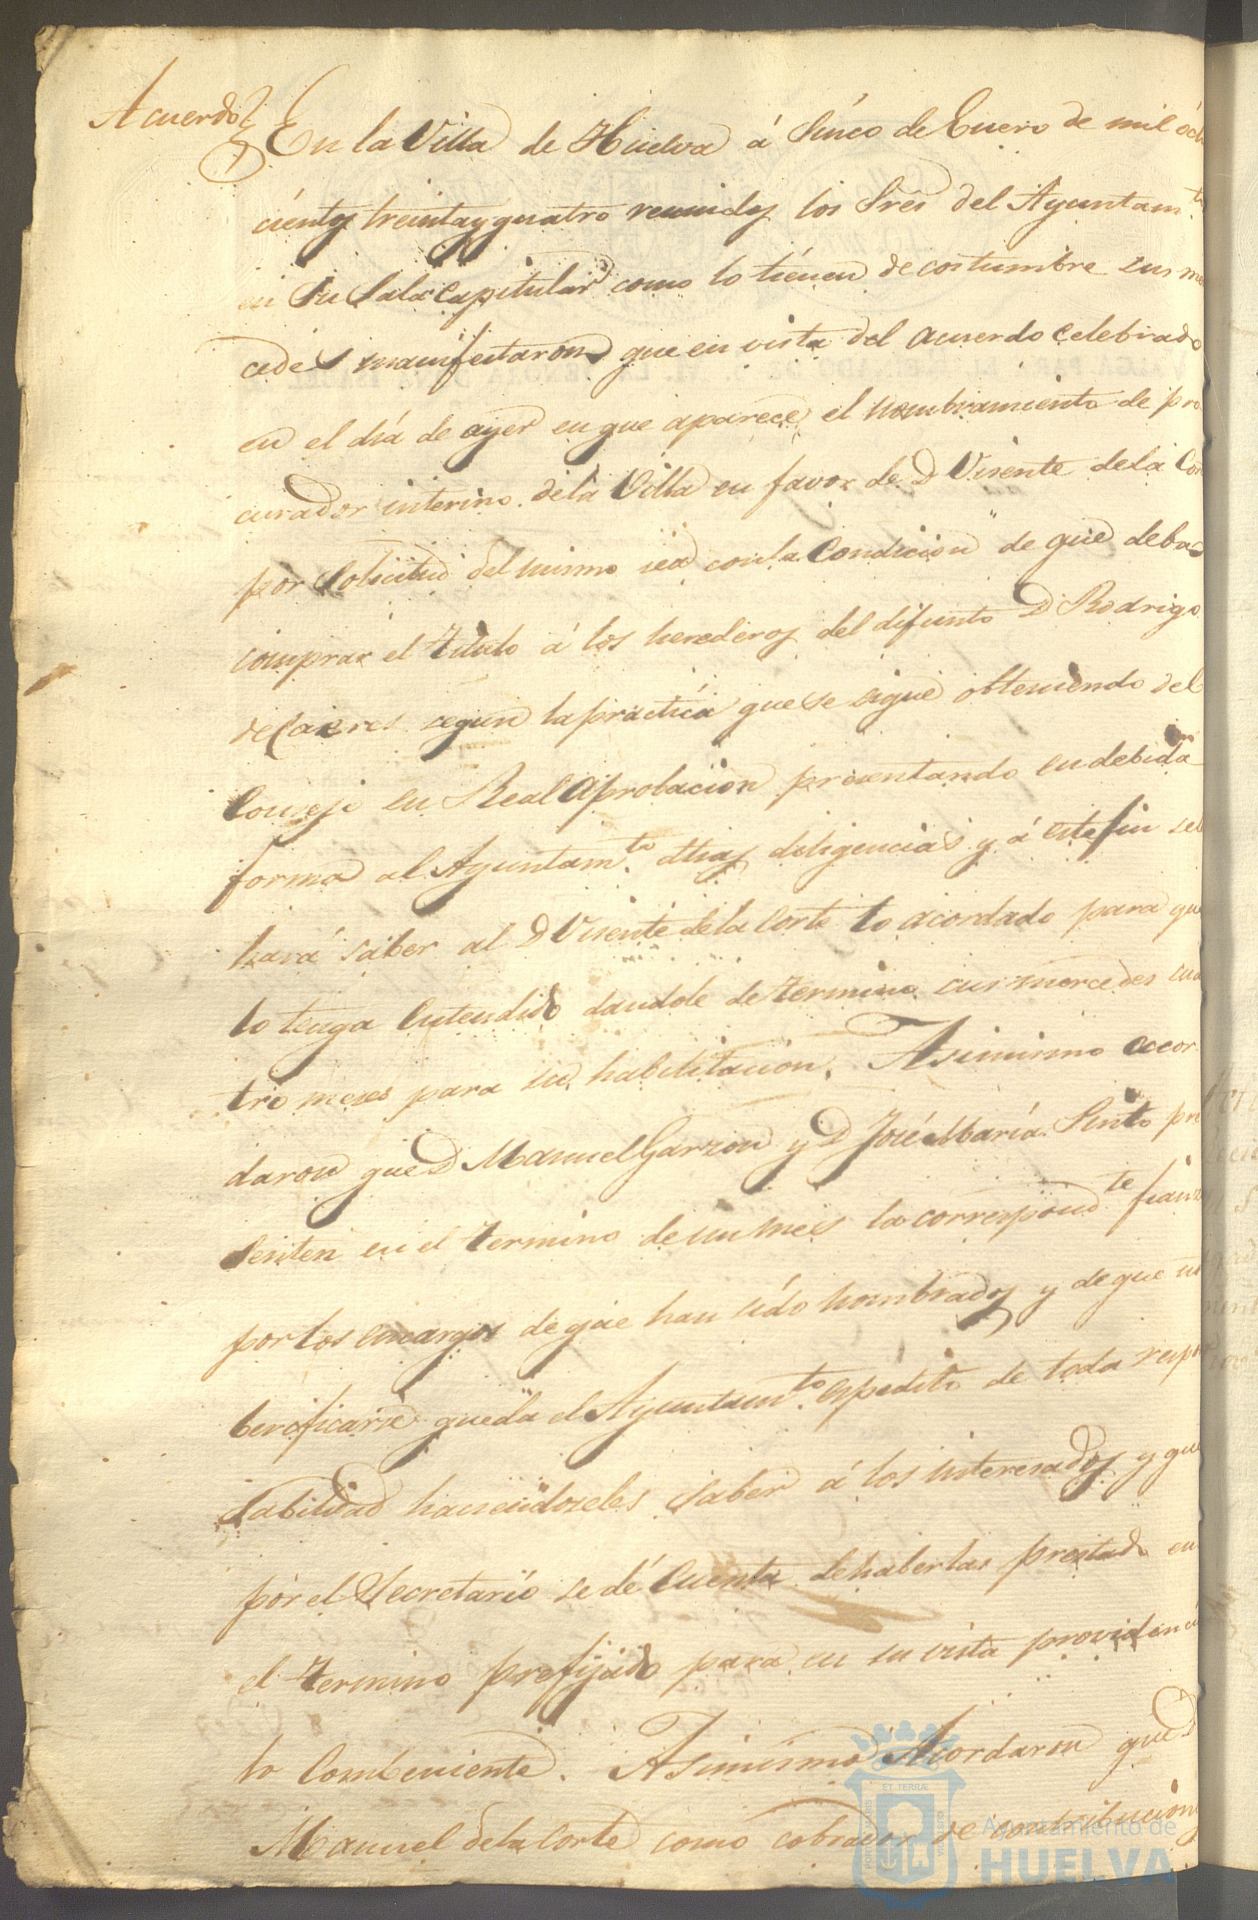 Acuerdo
En la Villa de Huelva á Sinco de Enero de mil ócho
cientos treinta y quatro reunidos los Sres del Ayuntam.to
en Su Sala Capitular como lo tienen de costumbre sus mer
cedes manifestaron que en vista del acuerdo celebrado
en el diá de ayer en que aparece el nombramiento de pro
curador interino de la Villa en favor de D Visente de la Cor
por Solicitud del mismo sea con la Condicion de que deba
comprar el titulo á los herederos del difunto D Rodrigo
de Caseres segun la practica que se sigue obteniendo del
Consejo su Real Aprobacion presentando en debida
forma al Ayuntam.to dhas diligencias y á este fin se le
hará saber al D Visente de la Corte lo acordado para que
lo tenga Entendido dandole de termino sus mercedes cua
tro meses para su habilitacion. Asimismo acor
daron que D Manuel Garzon y D José Maria Sinto pre
senten en el termino de un mes la correspond.te fianz
por los encargos de que han sido nombrados y de que no
berificarse queda el Ayuntam.to espedito de toda respon
sabilidad haciendoseles saber á los interesados y que
por el Secretario se dé Cuenta de haberlas prestado en
el termino prefijado para en su vista providencia
lo Combeniente. Asimismo Acordaron que D
Manuel de la Corte como cobrador de contribucions
Ayuntamiento de
HUELVA